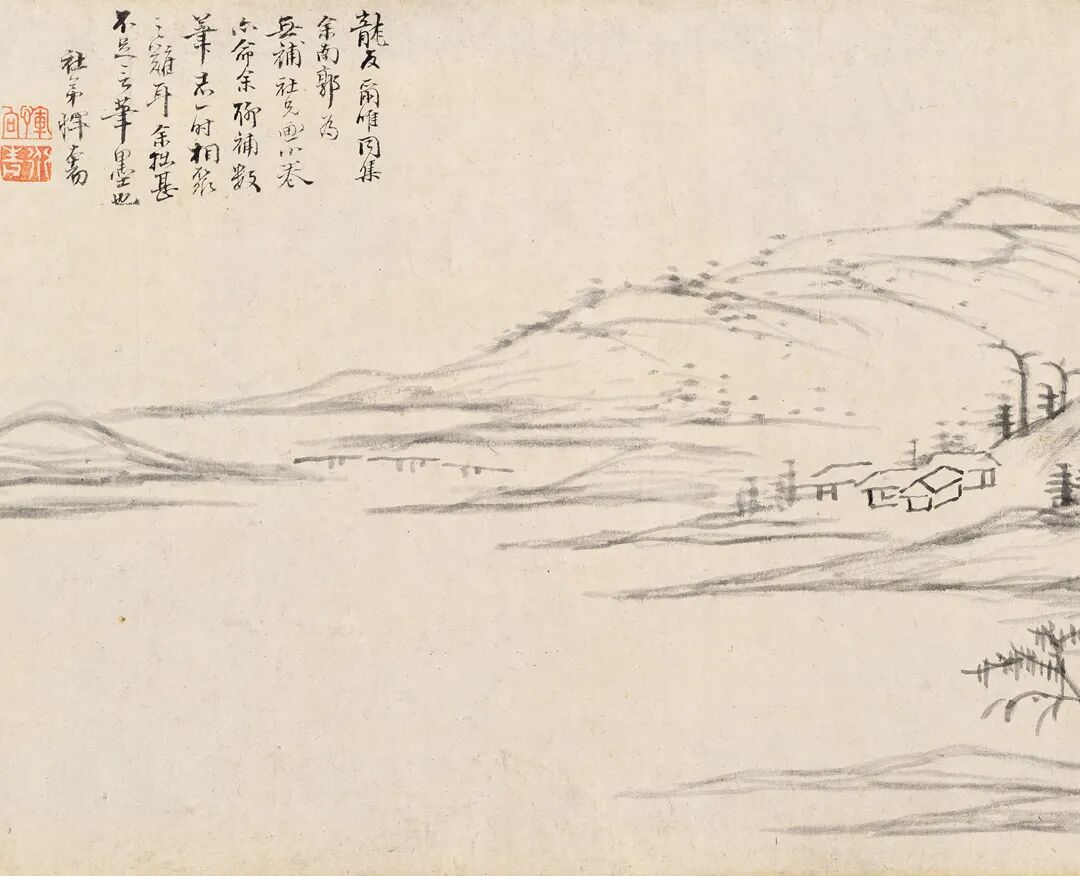 龍友爾唯同集
余南郭為
無補社兄画小卷
亦命余聊補數
筆志一时相聚
之難耳余拙甚
不足言筆墨也
社弟惲